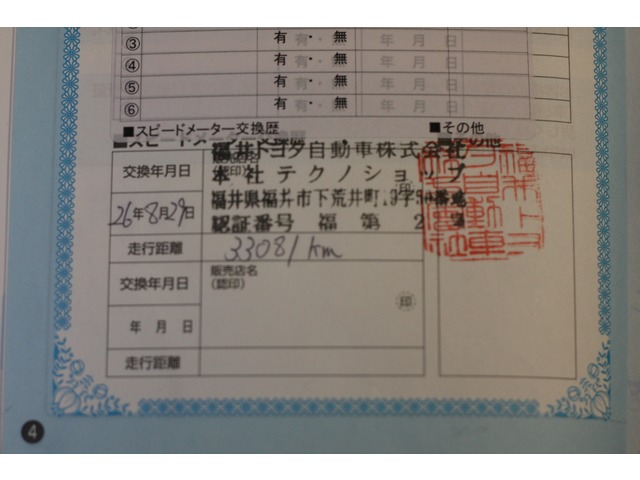 ③ 有・無 年 月 日
④ 有・無 年 月 日
⑤ 有・無
⑥ 有・無
■スピードメーター交換歴 ■その他
交換年月日 販売店名
(認印)
福井トヨタ自動車株式会社
本社テクノショップ
福井県福井市下荒井町
認証番号 福 第 2
26年8月29日
走行距離 33081km
交換年月日 販売店名
(認印)
年 月 日 印
走行距離
4